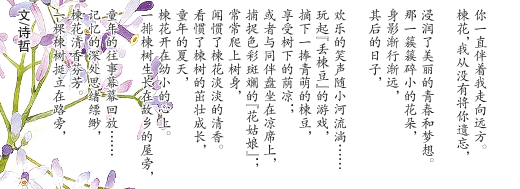 文/诗哲
一棵楝树挺立在路旁，
楝花清香芬芳。
记忆的深处思绪缥缈，
童年的往事幕幕回放……
一排楝树生长在故乡的屋旁，
楝花开在幼小的心上。
童年的夏天，
看惯了楝树的茁壮成长，
闻惯了楝花淡淡的清香。
常常爬上树身，
捕捉色彩斑斓的『花姑娘』；
或者与同伴盘坐在凉席上，
享受树下的荫凉；
摘下一捧青萌的楝豆，
玩起『丢楝豆』的游戏，
欢乐的笑声随小河流淌……
其后的日子，
身影渐行渐远，
那一簇簇碎小的花朵，
浸润了美丽的青春和梦想。
楝花，我从没有将你遗忘，
你一直伴着我走向远方。